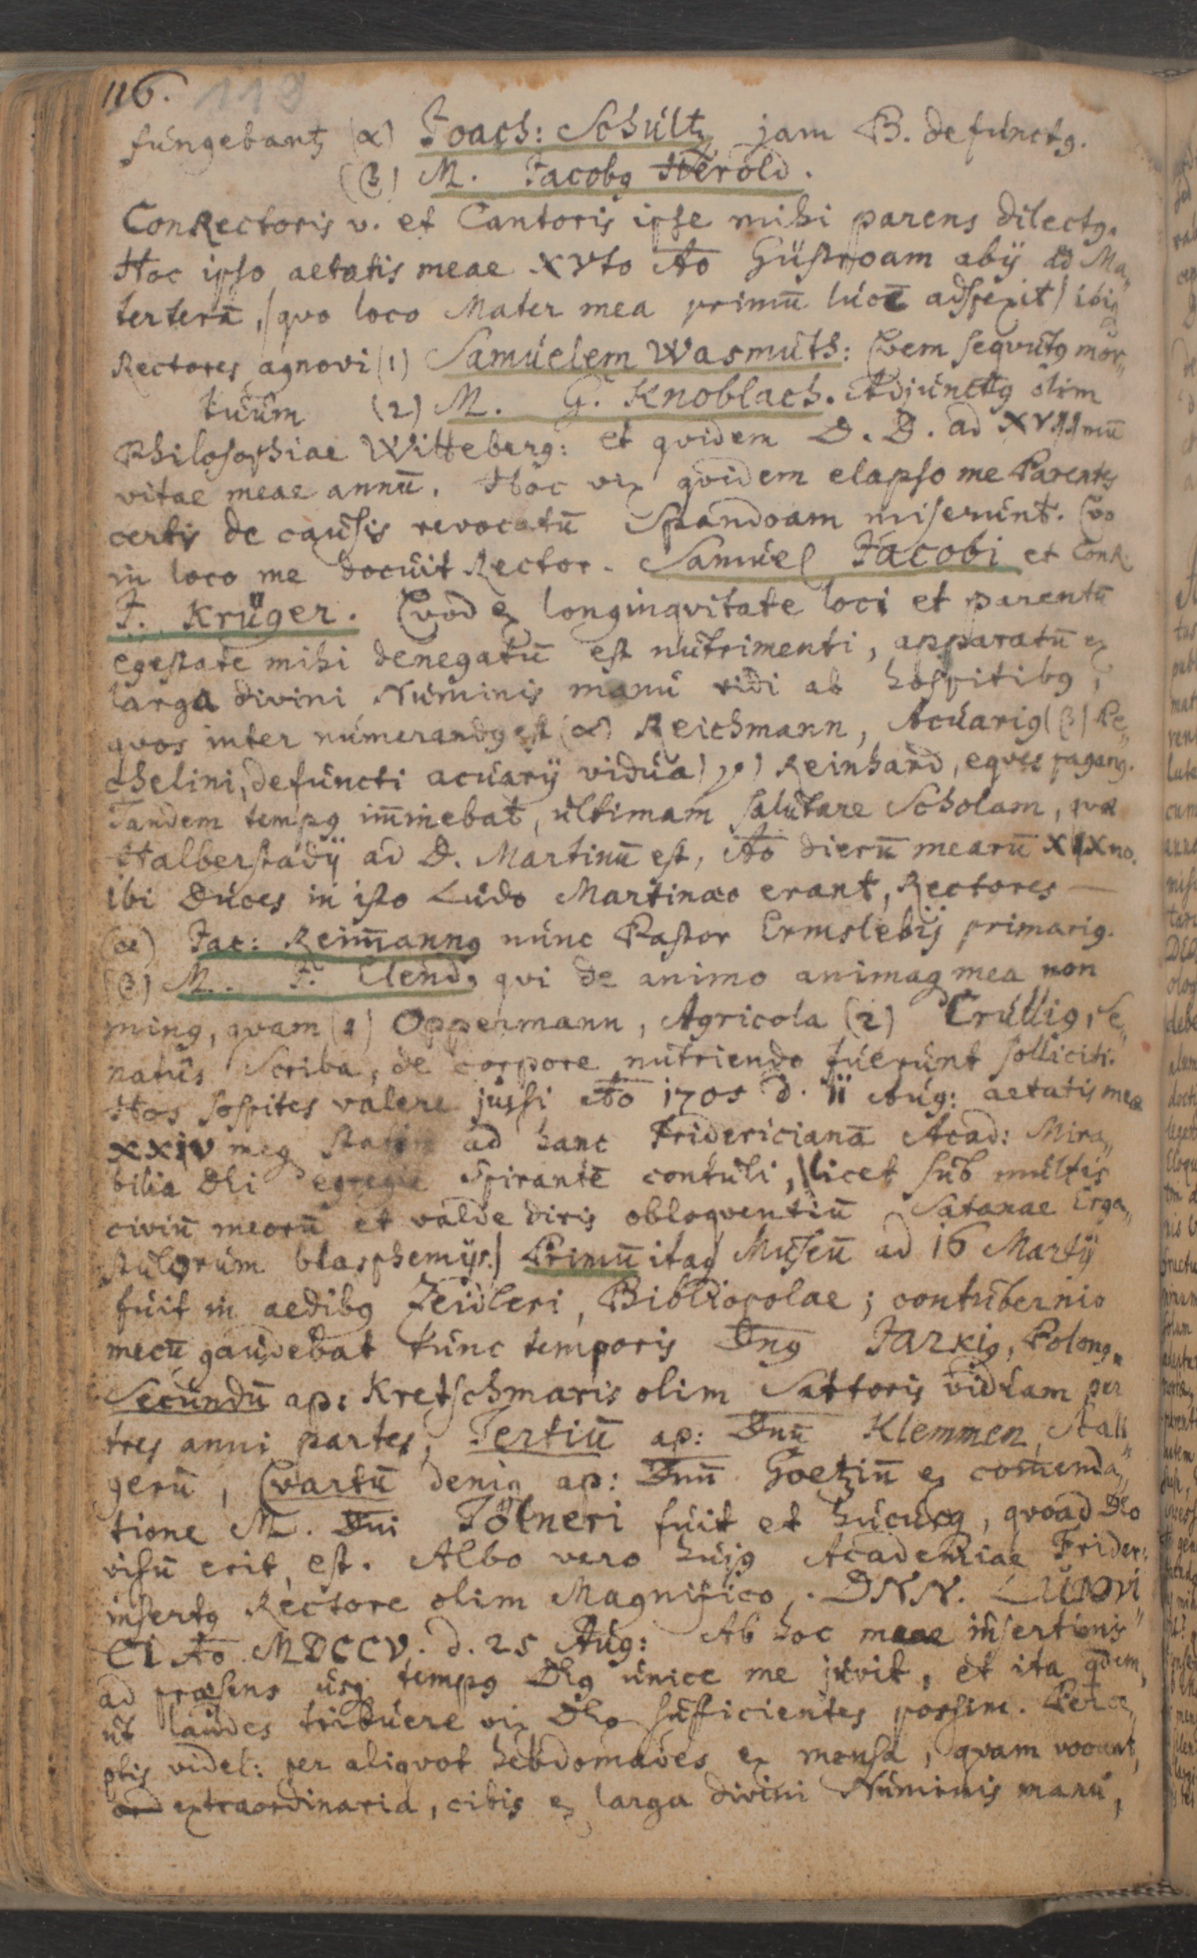 116. 119
fungebantz (α) Joach: Schultz jam B. defunctg.
(β) M. Jacobg Herold.
ConRectoris v. et Cantoris ipse mihi parens dilectg.
Hoc ipso aetatis meae XVto Ao Güstroam abÿ ad Ma„
terterā, (quo loco Mater mea primū lucē adspexit) ibiq
Rectores agnovi (1) Samuelem Wasmuth: Qvem seqvutg mor„
tuum (2) M. G. Knoblach. Adjunctg olim
Philosophiae Witteberg: et qvidem D. D. ad XVIImū
vitae meae annū. Hoc vix qvidem elapso me Parentes
certis de causis revocatū Spandoam miserunt. Qvo
in loco me docuit Rector. Samuel Jacobi et ConR.
J. Krüger. Qvod ex longinqvitate loci et parentū
egestate mihi denegatū est nutrimenti, apparatū ex
larga divini Numinis manu vidi ab hospitibg,
qvos inter numerandg est (α) Reichmann, Acuarig (β) Re„
chelini, defuncti acuarÿ vidua) γ) Reinhard, eqves pagang.
Tandem tempg im̄inebat, ultimam salutare Scholam, qvae
Halberstadÿ ad D. Martinū est, Ao dierū mearū XIXno.
ibi Duces in isto Ludo Martinaeo erant, Rectores —
(α) Jac: Reim̄anng nunc Pastor Ermslebÿ primarig.
(β) M. F. Clendg qvi de animo animaq mea non
ming, qvam (1) Oppermann, Agricola (2) Crullig, Se„
natus Scriba, de corpore nutriendo fuerunt solliciti.
Hos sospites valere jussi Ao 1705 d. 11 Aug: aetatis meae
XXIV meq statim ad hanc Fridericianā Acad: Mira„
bilia Dei egregie Spirantē contuli, (licet sub multis
civiū meorū et valde diris obloqventiū Satanae Erga„
stulorum blasphemÿs.) Primū itaq Museū ad 16 Martÿ
fuit in aedibg Zeidleri, Bibliopolae; contubernio
mecū gaudebat tunc temporis Dng Jarkig, Polong.
Secundū ap: Kretschmaris olim Sartoris viduam per
tres anni partes, Tertiū ap: Dnū Klemmen, Stali„
gerū, Qvartū deniq ap: Dnū Goetziū ex com̄enda„
tione M. Dni Tölneri fuit et hucusq, qvoad Deo
visū erit, est. Albo vero hujg Academiae Frider:
insertg Rectore olim Magnifico, DNN. LUDVI„
CI Ao MDCCV. d. 25 Aug: Ab hoc meae insertionis
ad praesens usq tempg Deg unice me juvit, et ita qdem,
ut laudes tribuere vix Deo sufficientes possim. Perce„
ptis videl: per aliqvot hebdomades ex mensa, qvam vocant,
extraordinaria, cibis ex larga divini Numinis manu,